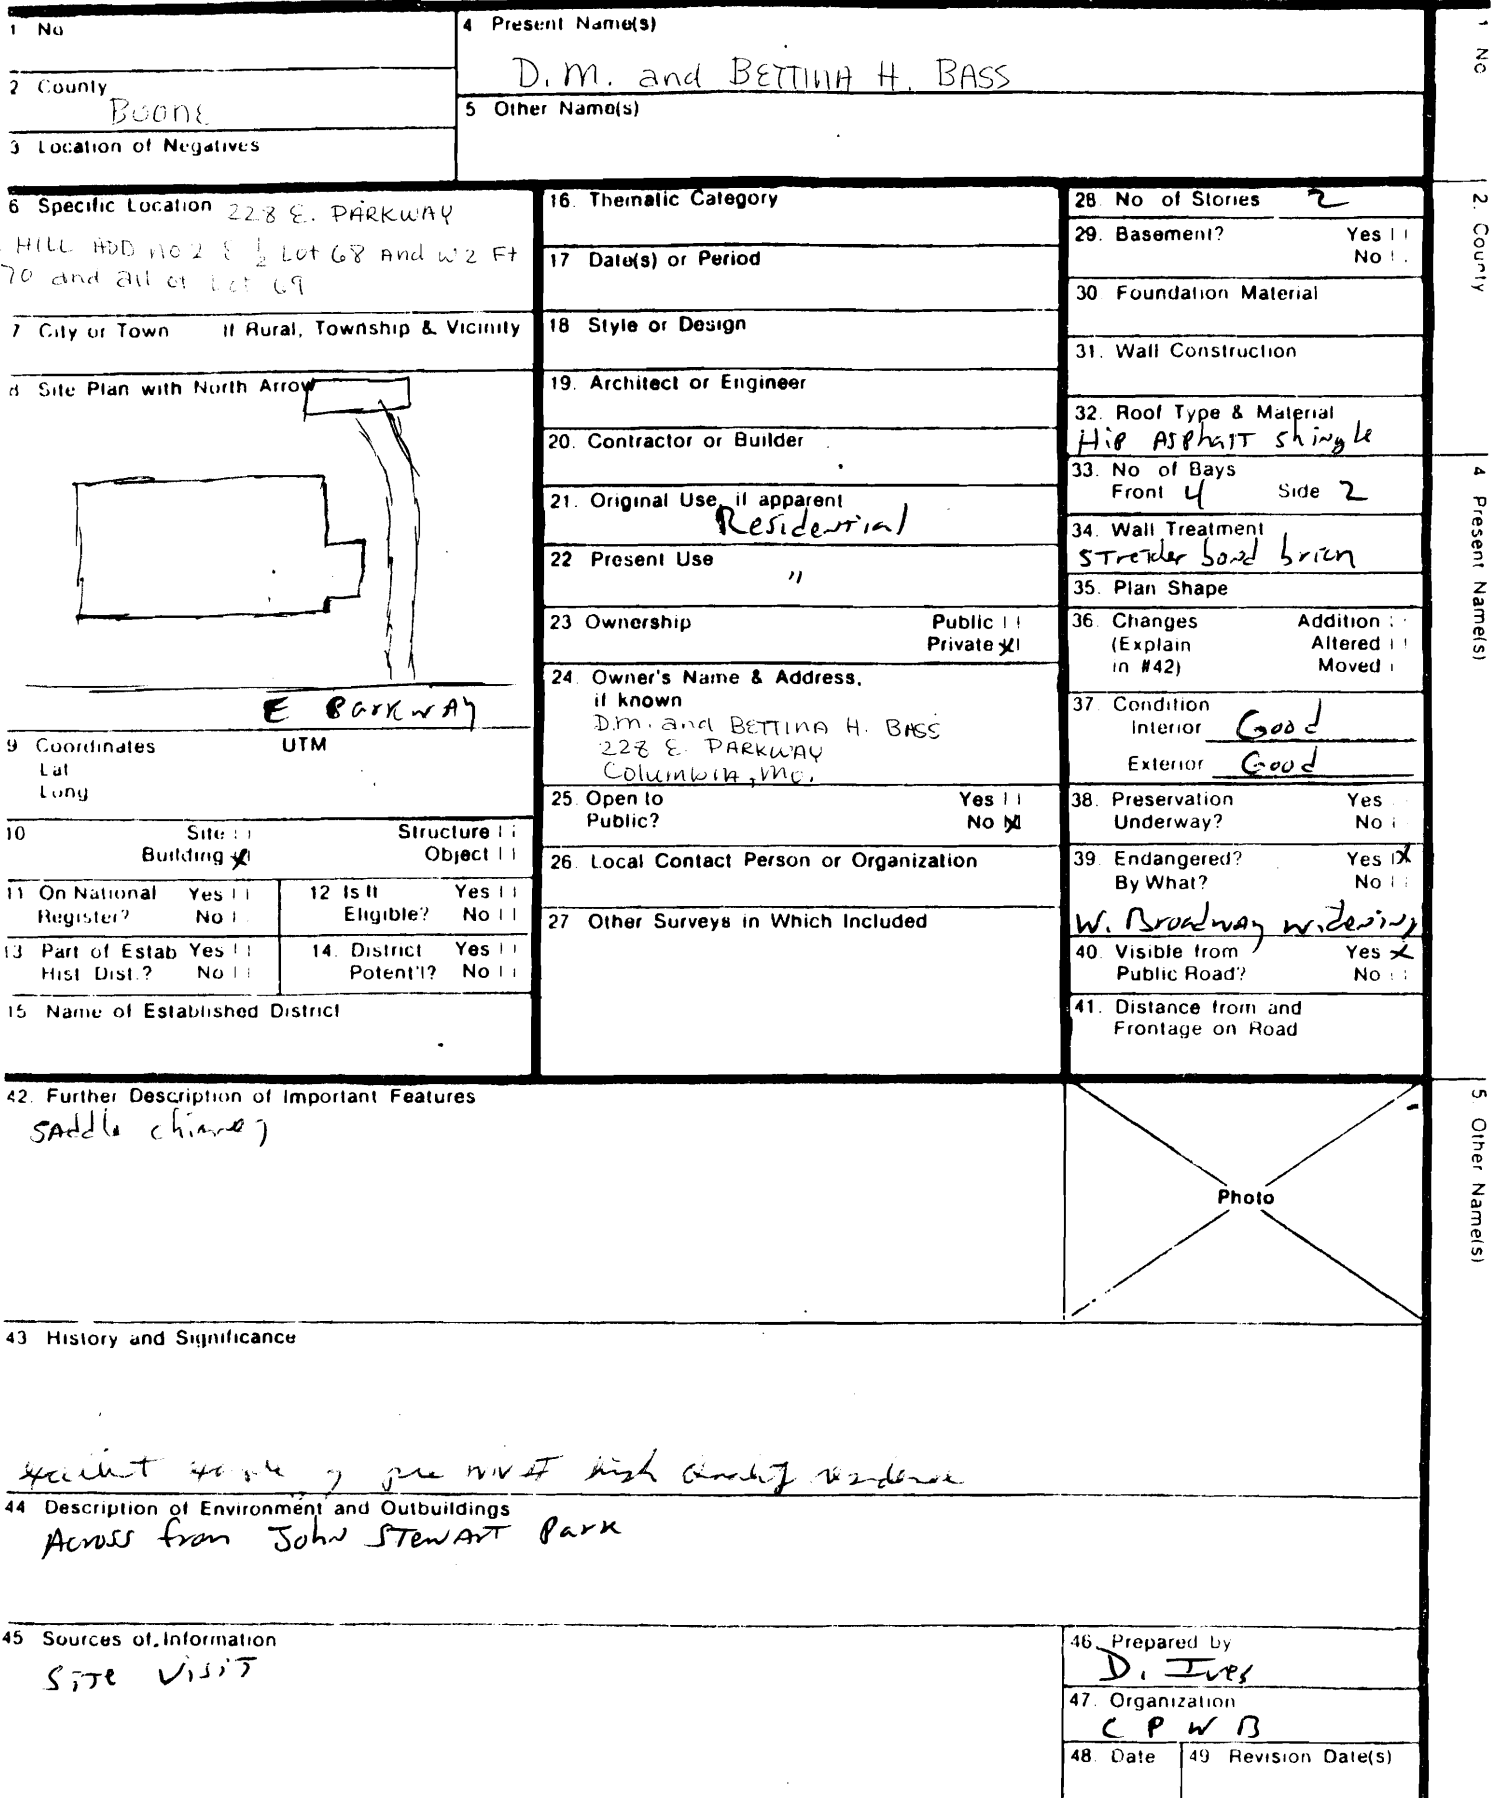 1 No
4 Present Name(s)
D.M. and BETTINA H. BASS
2 County
Boone
5 Other Name(s)
3 Location of Negatives
6 Specific Location 228 E. PARKWAY
HILL ADD no 2 E ½ Lot 68 And W 2 Ft
70 and all of Lot 69
7 City or Town If Rural, Township & Vicinity
8 Site Plan with North Arrow
E Parkway
9 Coordinates UTM
Lat
Long
10 Site
Structure
Building X
Object
11 On National Register? Yes No
12 Is It Eligible? Yes No
13 Part of Estab Hist Dist.? Yes No
14. District Potent'l? Yes No
15 Name of Established District
16. Thematic Category
17 Date(s) or Period
18 Style or Design
19. Architect or Engineer
20. Contractor or Builder
21. Original Use, if apparent
Residential
22 Present Use
"
23 Ownership Public
Private X
24. Owner's Name & Address,
if known
D.M. and BETTINA H. BASS
228 E. PARKWAY
Columbia, Mo.
25. Open to Yes
Public? No X
26. Local Contact Person or Organization
27 Other Surveys in Which Included
28. No of Stories 2
29. Basement? Yes
No
30 Foundation Material
31. Wall Construction
32. Roof Type & Material
Hip Asphalt shingle
33. No of Bays
Front 4 Side 2
34. Wall Treatment
bond
35. Plan Shape
36. Changes Addition
(Explain Altered
in #42) Moved
37. Condition
Interior Good
Exterior Good
38. Preservation Yes
Underway? No
39. Endangered? Yes X
By What? No
W. Broadway widening
40. Visible from Yes X
Public Road? No
41. Distance from and
Frontage on Road
42. Further Description of Important Features
Saddle chimney
Photo
43 History and Significance
excellent example of pre high quality residence
44 Description of Environment and Outbuildings
Across from John Stewart Park
45 Sources of Information
Site Visit
46. Prepared by
D. Ives
47. Organization
C P W B
48. Date
49 Revision Date(s)
1 No
2. County
4 Present Name(s)
5. Other Name(s)